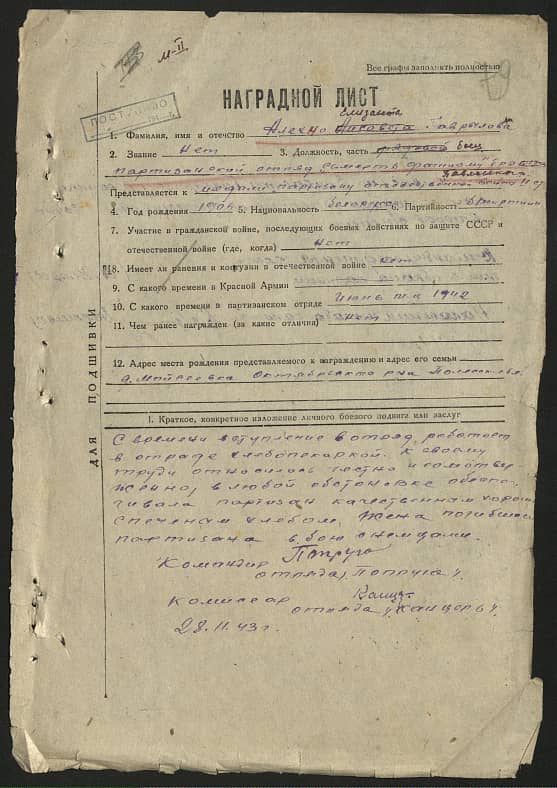 М-II
Все графы заполнять полностью
ПОСТУПИЛО
НАГРАДНОЙ ЛИСТ
Елизавета
1. Фамилия, имя и отчество Алехно Гаврыловна
2. Звание Нет 3. Должность, часть рядовой боец
партизанский отряд "Смерть фашизму"
Представляется к медали партизану отечественной войны II ст
4. Год рождения 5. Национальность белоруска 6. Партийность
7. Участие в гражданской войне, последующих боевых действиях по защите СССР и
отечественной войне (где, когда) нет
8. Имеет ли ранения и контузии в отечественной войне нет
9. С какого времени в Красной Армии
10. С какого времени в партизанском отряде Июнь м-ц 1942
11. Чем ранее награжден (за какие отличия) нет
12. Адрес места рождения представляемого к награждению и адрес его семьи
Октябрьского р-на
ДЛЯ ПОДШИВКИ
I. Краткое, конкретное изложение личного боевого подвига или заслуг
С времени вступление в отряд, работает
в отраде хлебопекаркой. К своему
труду относилась честно и
в любой обстановке
партизан качественнам
спеченам хлебом. Жена погибшего
партизана в бою с немцами.
Командир Попруга
отряда (Попруга)
Комиссар
отряда
28.11.43г.